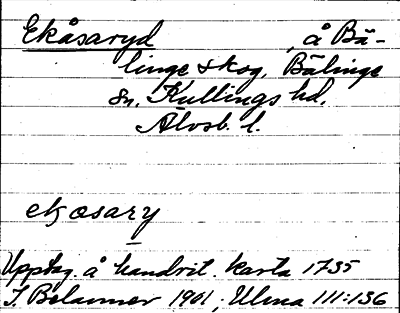 Ekåsaryd å Bä-
linge skog, Bälinge
sn. Kullings hd.
Älvsb. l.
ekåsary
Upptag. å handrit. karta 1735
J. Belanner 1901, Ulma 111:136